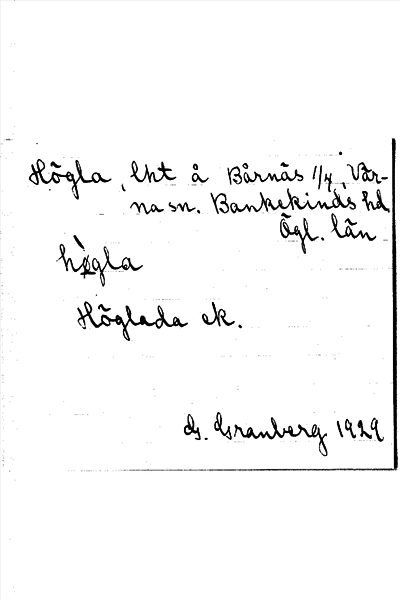 Högla, lht å Bårnäs 1/4, Vår-
na sn. Bankekinds hd.
Ögl. län
hø̀gla
Höglada ek.
G. Granberg 1929